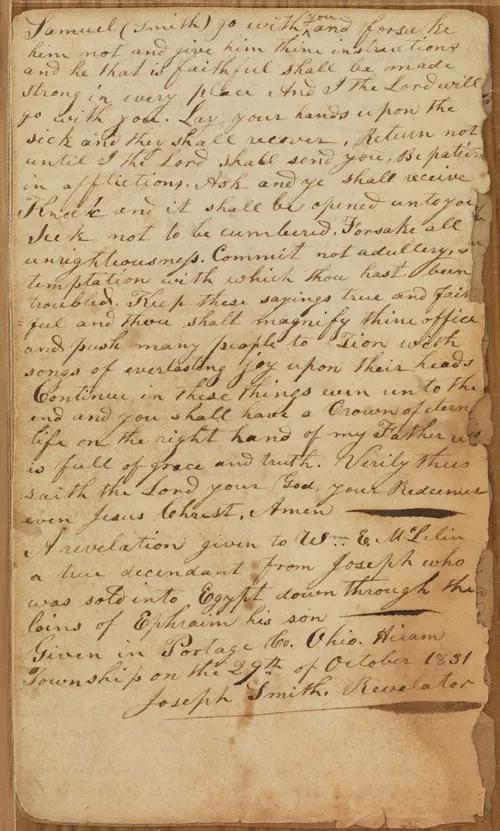 Samuel (Smith) go with you and forsake
him not and give him thine instructions
and he that is faithful shall be made
strong in every place And I the Lord will
go with you. Lay your hands upon the
sick and they shall recover. Return not
until I the Lord shall send you, Be patien
in afflictions. Ask and ye shall receive
Knock and it shall be opened unto you
Seek not to be cumbered. Forsake all
unrighteousness. Commit not adultery, a
temptation with which thou hast been
troubled. Keep these sayings true and faith
=ful and thou shalt magnify thine office
and push many people to Zion with
songs of everlasting joy upon their heads
Continue in these things even unto the
end and you shall have a Crown of etern
life on the right hand of my Father who
is full of grace and truth. Verily thus
saith the Lord your God, your Redeemer
even Jesus Christ, Amen
A revelation given to Wm E, McLelin
a true decendant from Joseph who
was sold into Egypt down through the
loins of Ephraim his son
Given in Portage Co. Ohio. Hiram
Township on the 29th of October 1831
Joseph Smith. Revelator